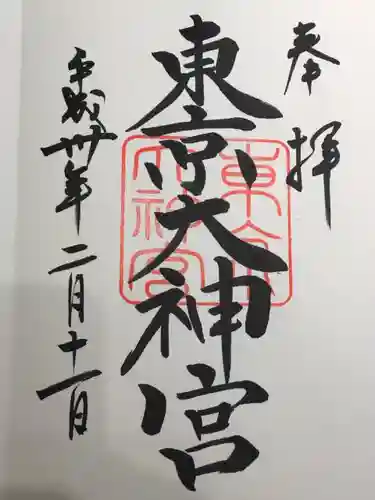 奉拝
東京大神宮
平成卅年二月十一日
東京大神宮